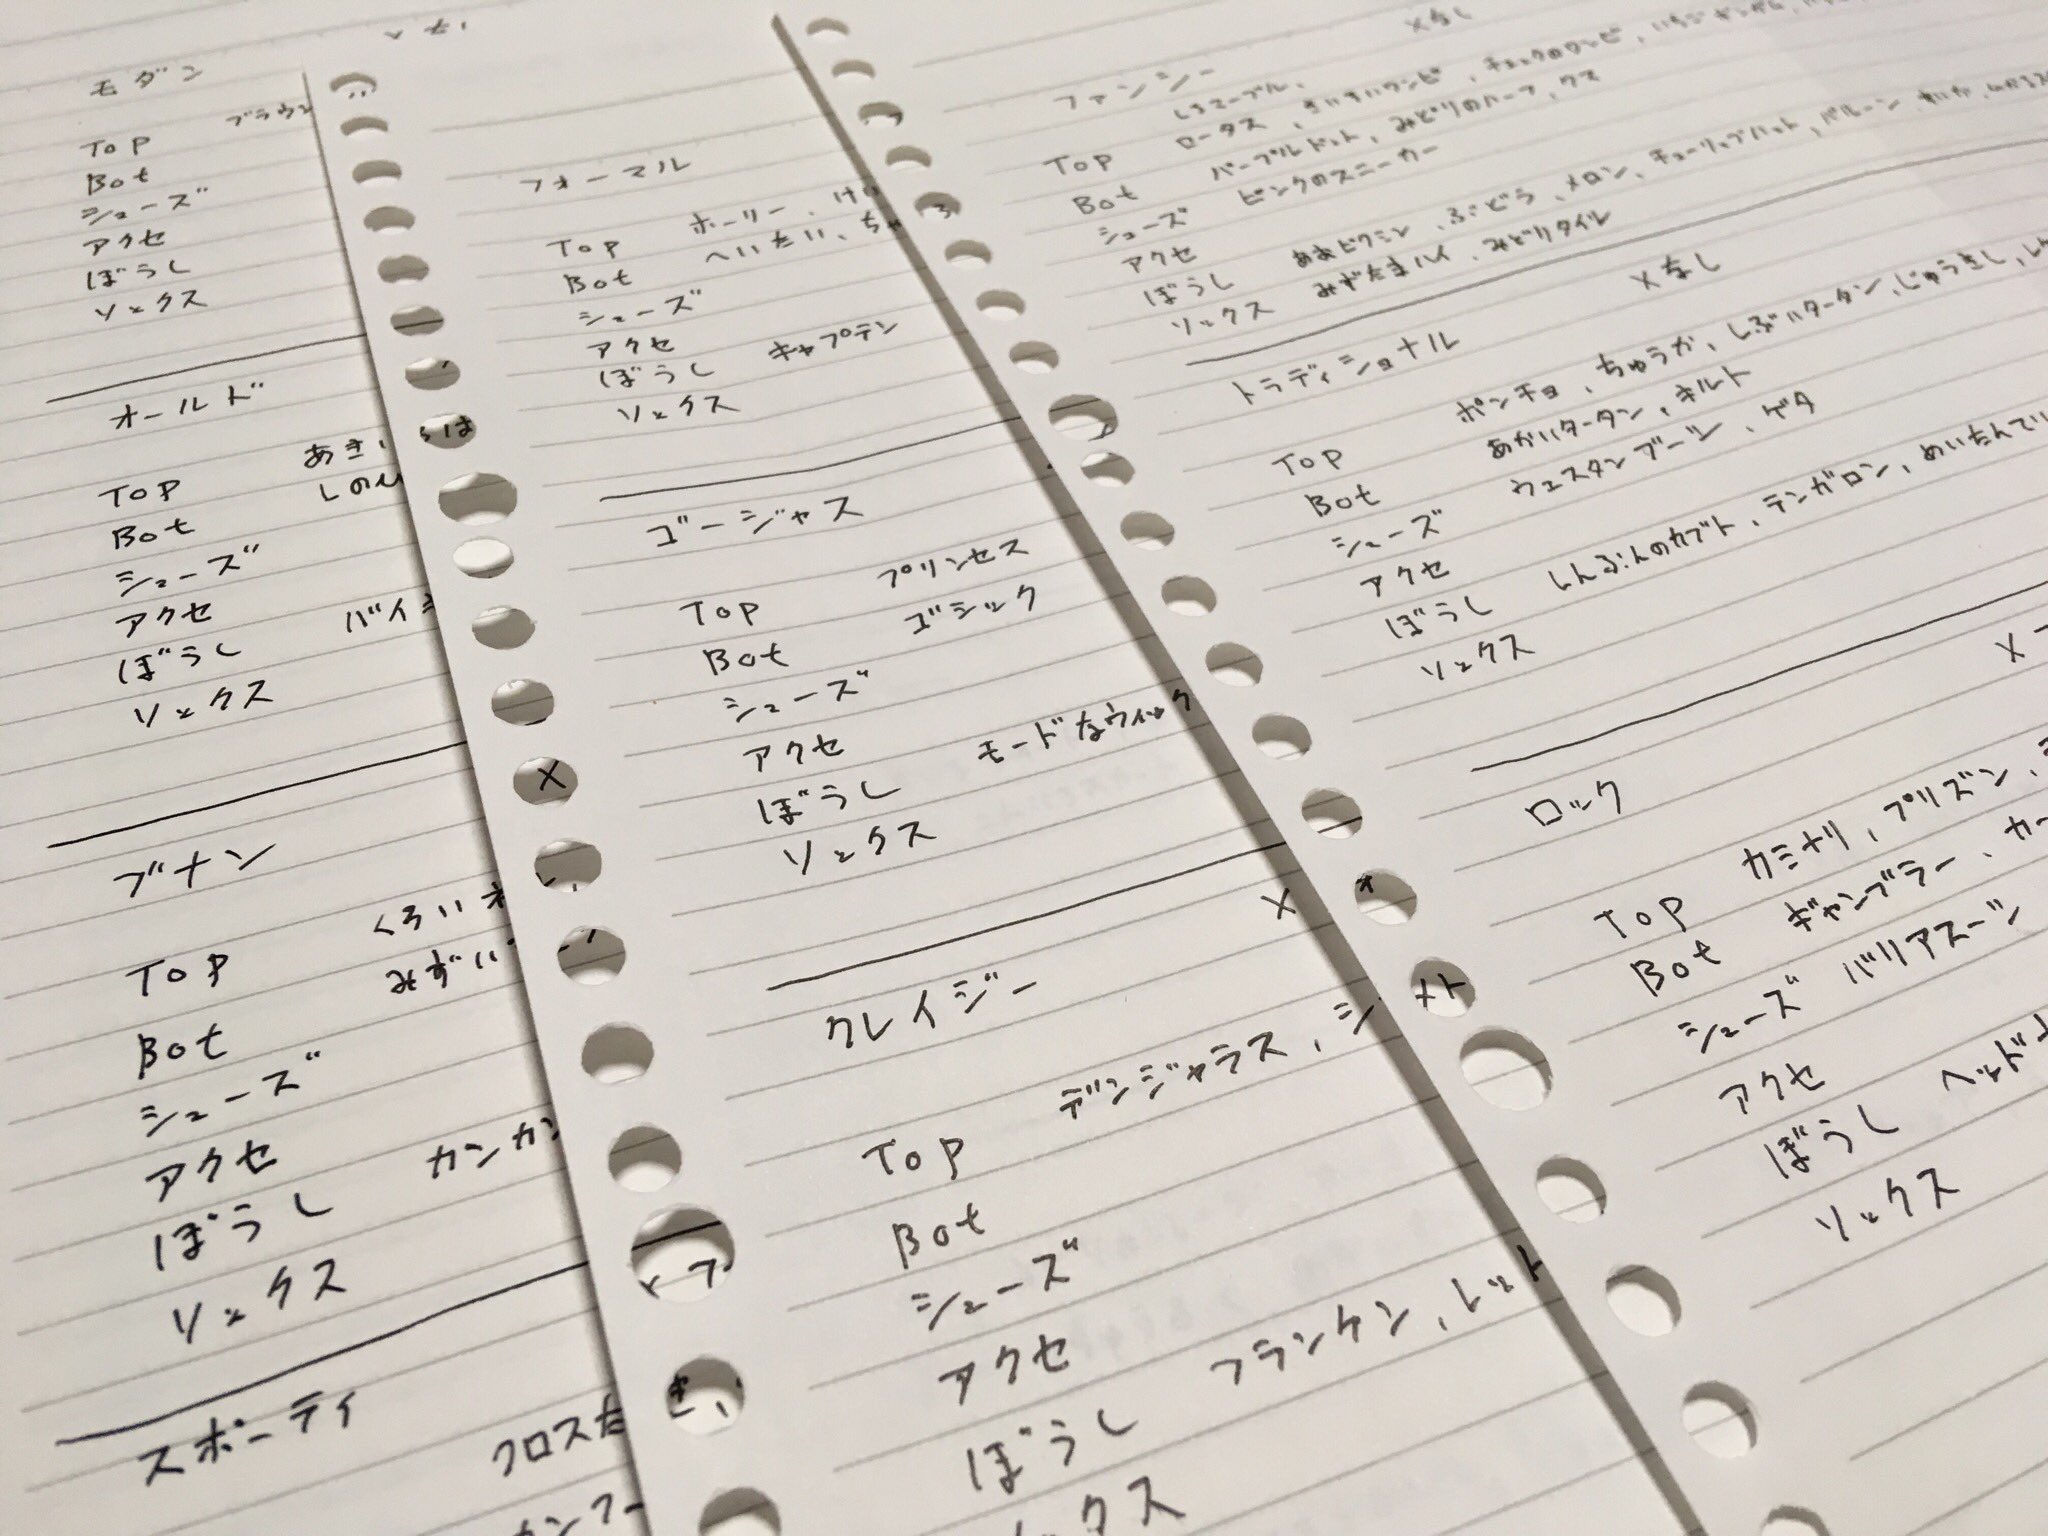 モダン
ブラウン
TOP
Bot
シューズ
アクセ
ぼうし
ソックス
オールド
TOP
あきい
Bot
シューズ
アクセ
ぼうし
ソックス
X
ブナン
TOP
くろい
Bot
みずい
シューズ
アクセ
ぼうし
カンカン
ソックス
スポーティ
クロス
フォーマル
TOP ホーリー、
Bot へいたい、
シューズ
アクセ
ぼうし キャプテン
ソックス
ゴージャス
TOP プリンセス
Bot ゴシック
シューズ
アクセ
ぼうし モードなウィック
ソックス
X
クレイジー
TOP デンジャラス、
Bot
シューズ
アクセ
ぼうし フランケン、
ックス
Xなし
ファンシー
TOP ロータス、
Bot パープルドット、みどりのハーフ、
シューズ ピンクのスニーカー
アクセ
ぼうし あおピクミン、ぶどう、メロン、チューリップハット、バルーン
ソックス みずたまハイ、みどりタイル
Xなし
トラディショナル
TOP ポンチョ、ちゅうか、しぶいタータン、じゅうきし、
Bot あかいタータン、キルト
シューズ ウェスタンブーツ、ゲタ
アクセ
ぼうし しんぶんのカブト、テンガロン、めいたんてい
ソックス
X
ロック
TOP カミナリ、プリズン、
Bot ギャンブラー、
シューズ バリアスーツ
アクセ
ぼうし ヘッド
ソックス